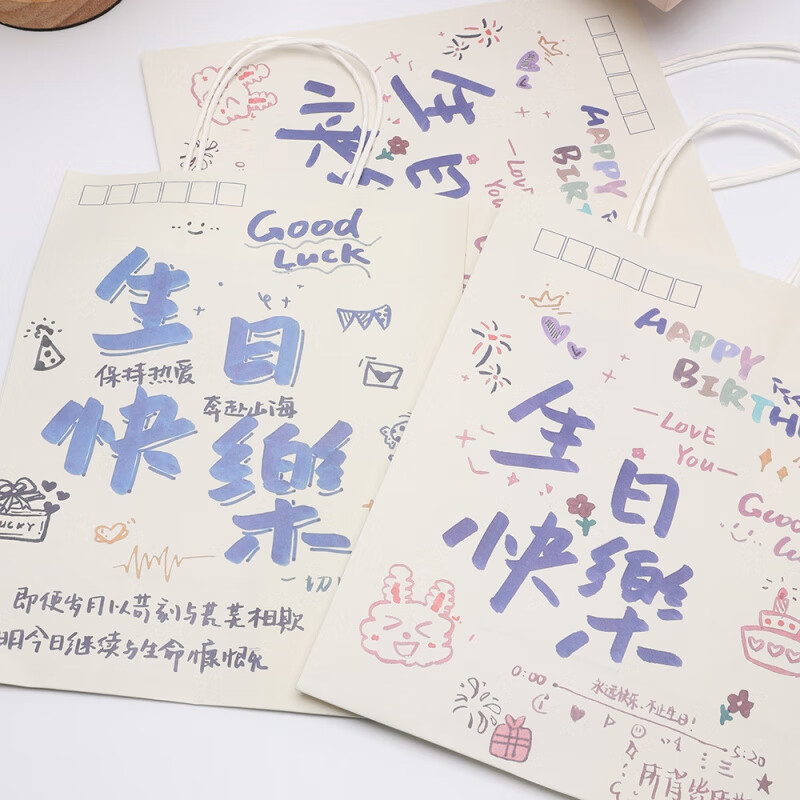 Good
Luck
生日
保持热爱
奔赴山海
快樂
LUCKY!
一切
即使岁月以苛刻与荒芜相欺
明今日继续与生命慷慨
生日
快
—LOVE
You
HAPPY
BIRTH
HAPPY
BIRTH
—LOVE
You—
生日
快樂
Good
0:00
永远快乐,不止生日!
5:20